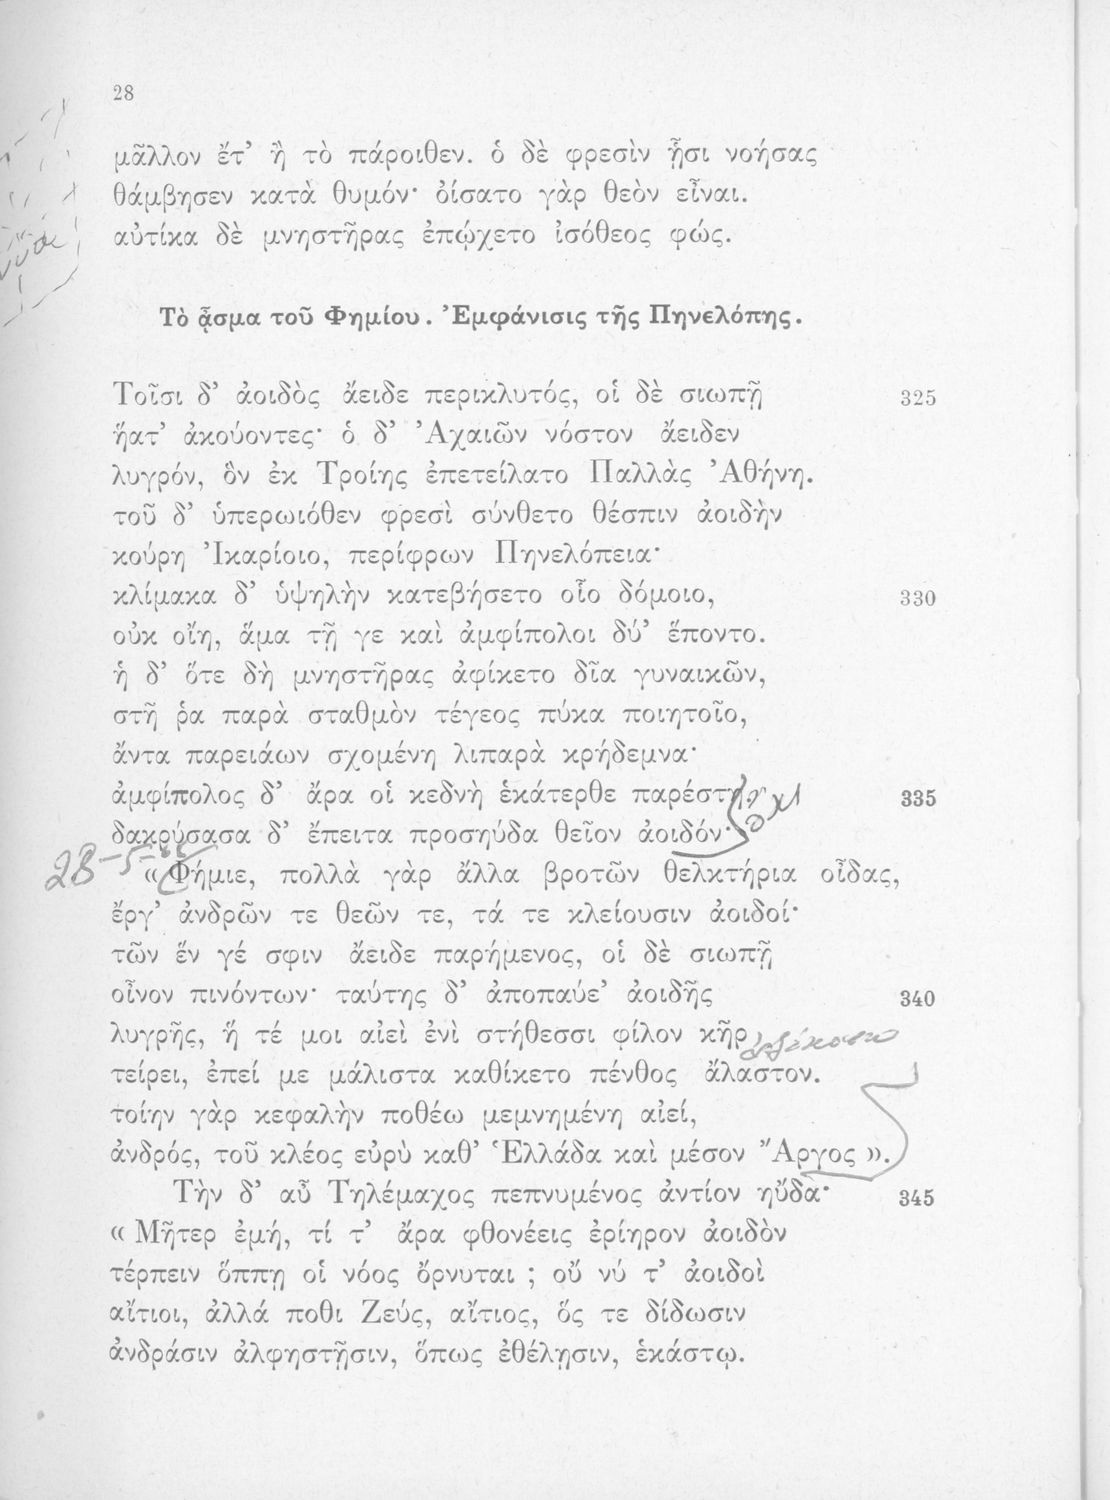 28
μᾶλλον ἔτ’ ἢ τὸ πάροιθεν. ὁ δὲ φρεσὶν ᾗσι νοήσας
θάμβησεν κατὰ θυμόν· ὀίσατο γὰρ θεὸν εἶναι.
αὐτίκα δὲ μνηστῆρας ἐπῴχετο ἰσόθεος φώς.
Τὸ ᾆσμα τοῦ Φημίου. Ἐμφάνισις τῆς Πηνελόπης.
Τοῖσι δ’ ἀοιδὸς ἄειδε περικλυτός, οἱ δὲ σιωπῇ 325
ἥατ’ ἀκούοντες· ὁ δ’ Ἀχαιῶν νόστον ἄειδεν
λυγρόν, ὃν ἐκ Τροίης ἐπετείλατο Παλλὰς Ἀθήνη.
τοῦ δ’ ὑπερωιόθεν φρεσὶ σύνθετο θέσπιν ἀοιδὴν
κούρη Ἰκαρίοιο, περίφρων Πηνελόπεια·
κλίμακα δ’ ὑψηλὴν κατεβήσετο οἷο δόμοιο, 330
οὐκ οἴη, ἅμα τῇ γε καὶ ἀμφίπολοι δύ’ ἕποντο.
ἡ δ’ ὅτε δὴ μνηστῆρας ἀφίκετο δῖα γυναικῶν,
στῆ ῥα παρὰ σταθμὸν τέγεος πύκα ποιητοῖο,
ἄντα παρειάων σχομένη λιπαρὰ κρήδεμνα·
ἀμφίπολος δ’ ἄρα οἱ κεδνὴ ἑκάτερθε παρέστη. 335
δακρύσασα δ’ ἔπειτα προσηύδα θεῖον ἀοιδόν·
28-5- « Φήμιε, πολλὰ γὰρ ἄλλα βροτῶν θελκτήρια οἶδας,
ἔργ’ ἀνδρῶν τε θεῶν τε, τά τε κλείουσιν ἀοιδοί·
τῶν ἕν γέ σφιν ἄειδε παρήμενος, οἱ δὲ σιωπῇ
οἶνον πινόντων· ταύτης δ’ ἀποπαύε’ ἀοιδῆς 340
λυγρῆς, ἥ τέ μοι αἰεὶ ἐνὶ στήθεσσι φίλον κῆρ
τείρει, ἐπεί με μάλιστα καθίκετο πένθος ἄλαστον.
τοίην γὰρ κεφαλὴν ποθέω μεμνημένη αἰεί,
ἀνδρός, τοῦ κλέος εὐρὺ καθ’ Ἑλλάδα καὶ μέσον Ἄργος ».
Τὴν δ’ αὖ Τηλέμαχος πεπνυμένος ἀντίον ηὔδα· 345
« Μῆτερ ἐμή, τί τ’ ἄρα φθονέεις ἐρίηρον ἀοιδὸν
τέρπειν ὅππῃ οἱ νόος ὄρνυται ; οὔ νύ τ’ ἀοιδοὶ
αἴτιοι, ἀλλά ποθι Ζεύς, αἴτιος, ὅς τε δίδωσιν
ἀνδράσιν ἀλφηστῇσιν, ὅπως ἐθέλῃσιν, ἑκάστῳ.